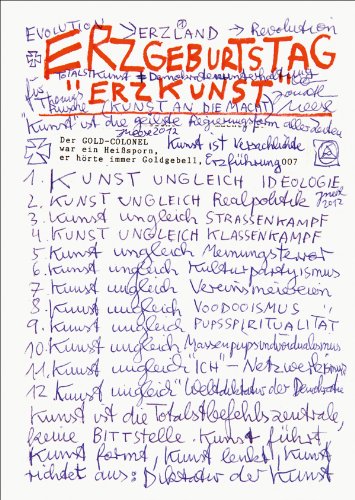 EVOLUTION > ERZLAND > Revolution
ERZGEBURTSTAG
TOTALSTKUNST = Demokratenunterhaltung
"ERZKUNST"
für
(KUNST AN DIE MACHT)
Meese
"Kunst" ist die geilste Regierungsform aller Zeiten
Meese 2012
Der GOLD-COLONEL
war ein Heißsporn,
er hörte immer Goldgebell,
Kunst ist Verschlußte
Erzführung 007
1. KUNST UNGLEICH IDEOLOGIE
2. KUNST UNGLEICH Realpolitik
Meese 2012
3. Kunst ungleich STRASSENKAMPF
4. KUNST UNGLEICH KLASSENKAMPF
5. Kunst ungleich Meinungsterror
6. Kunst ungleich Kulturpartyismus
7. Kunst ungleich Vereinsmeiereien
8. Kunst ungleich VOODOOISMUS
9. Kunst ungleich PUPSSPIRITUALITÄT
10. Kunst ungleich Massenpupsindividualismus
11. Kunst ungleich "ICH"-Netzwerkismus
12. Kunst ungleich "Weltdiktatur der Demokratie
Kunst ist die Totalstbefehlszentrale,
keine BITTSTELLE. Kunst führt,
Kunst formt, Kunst lenkt, Kunst
richtet aus: Diktatur der Kunst